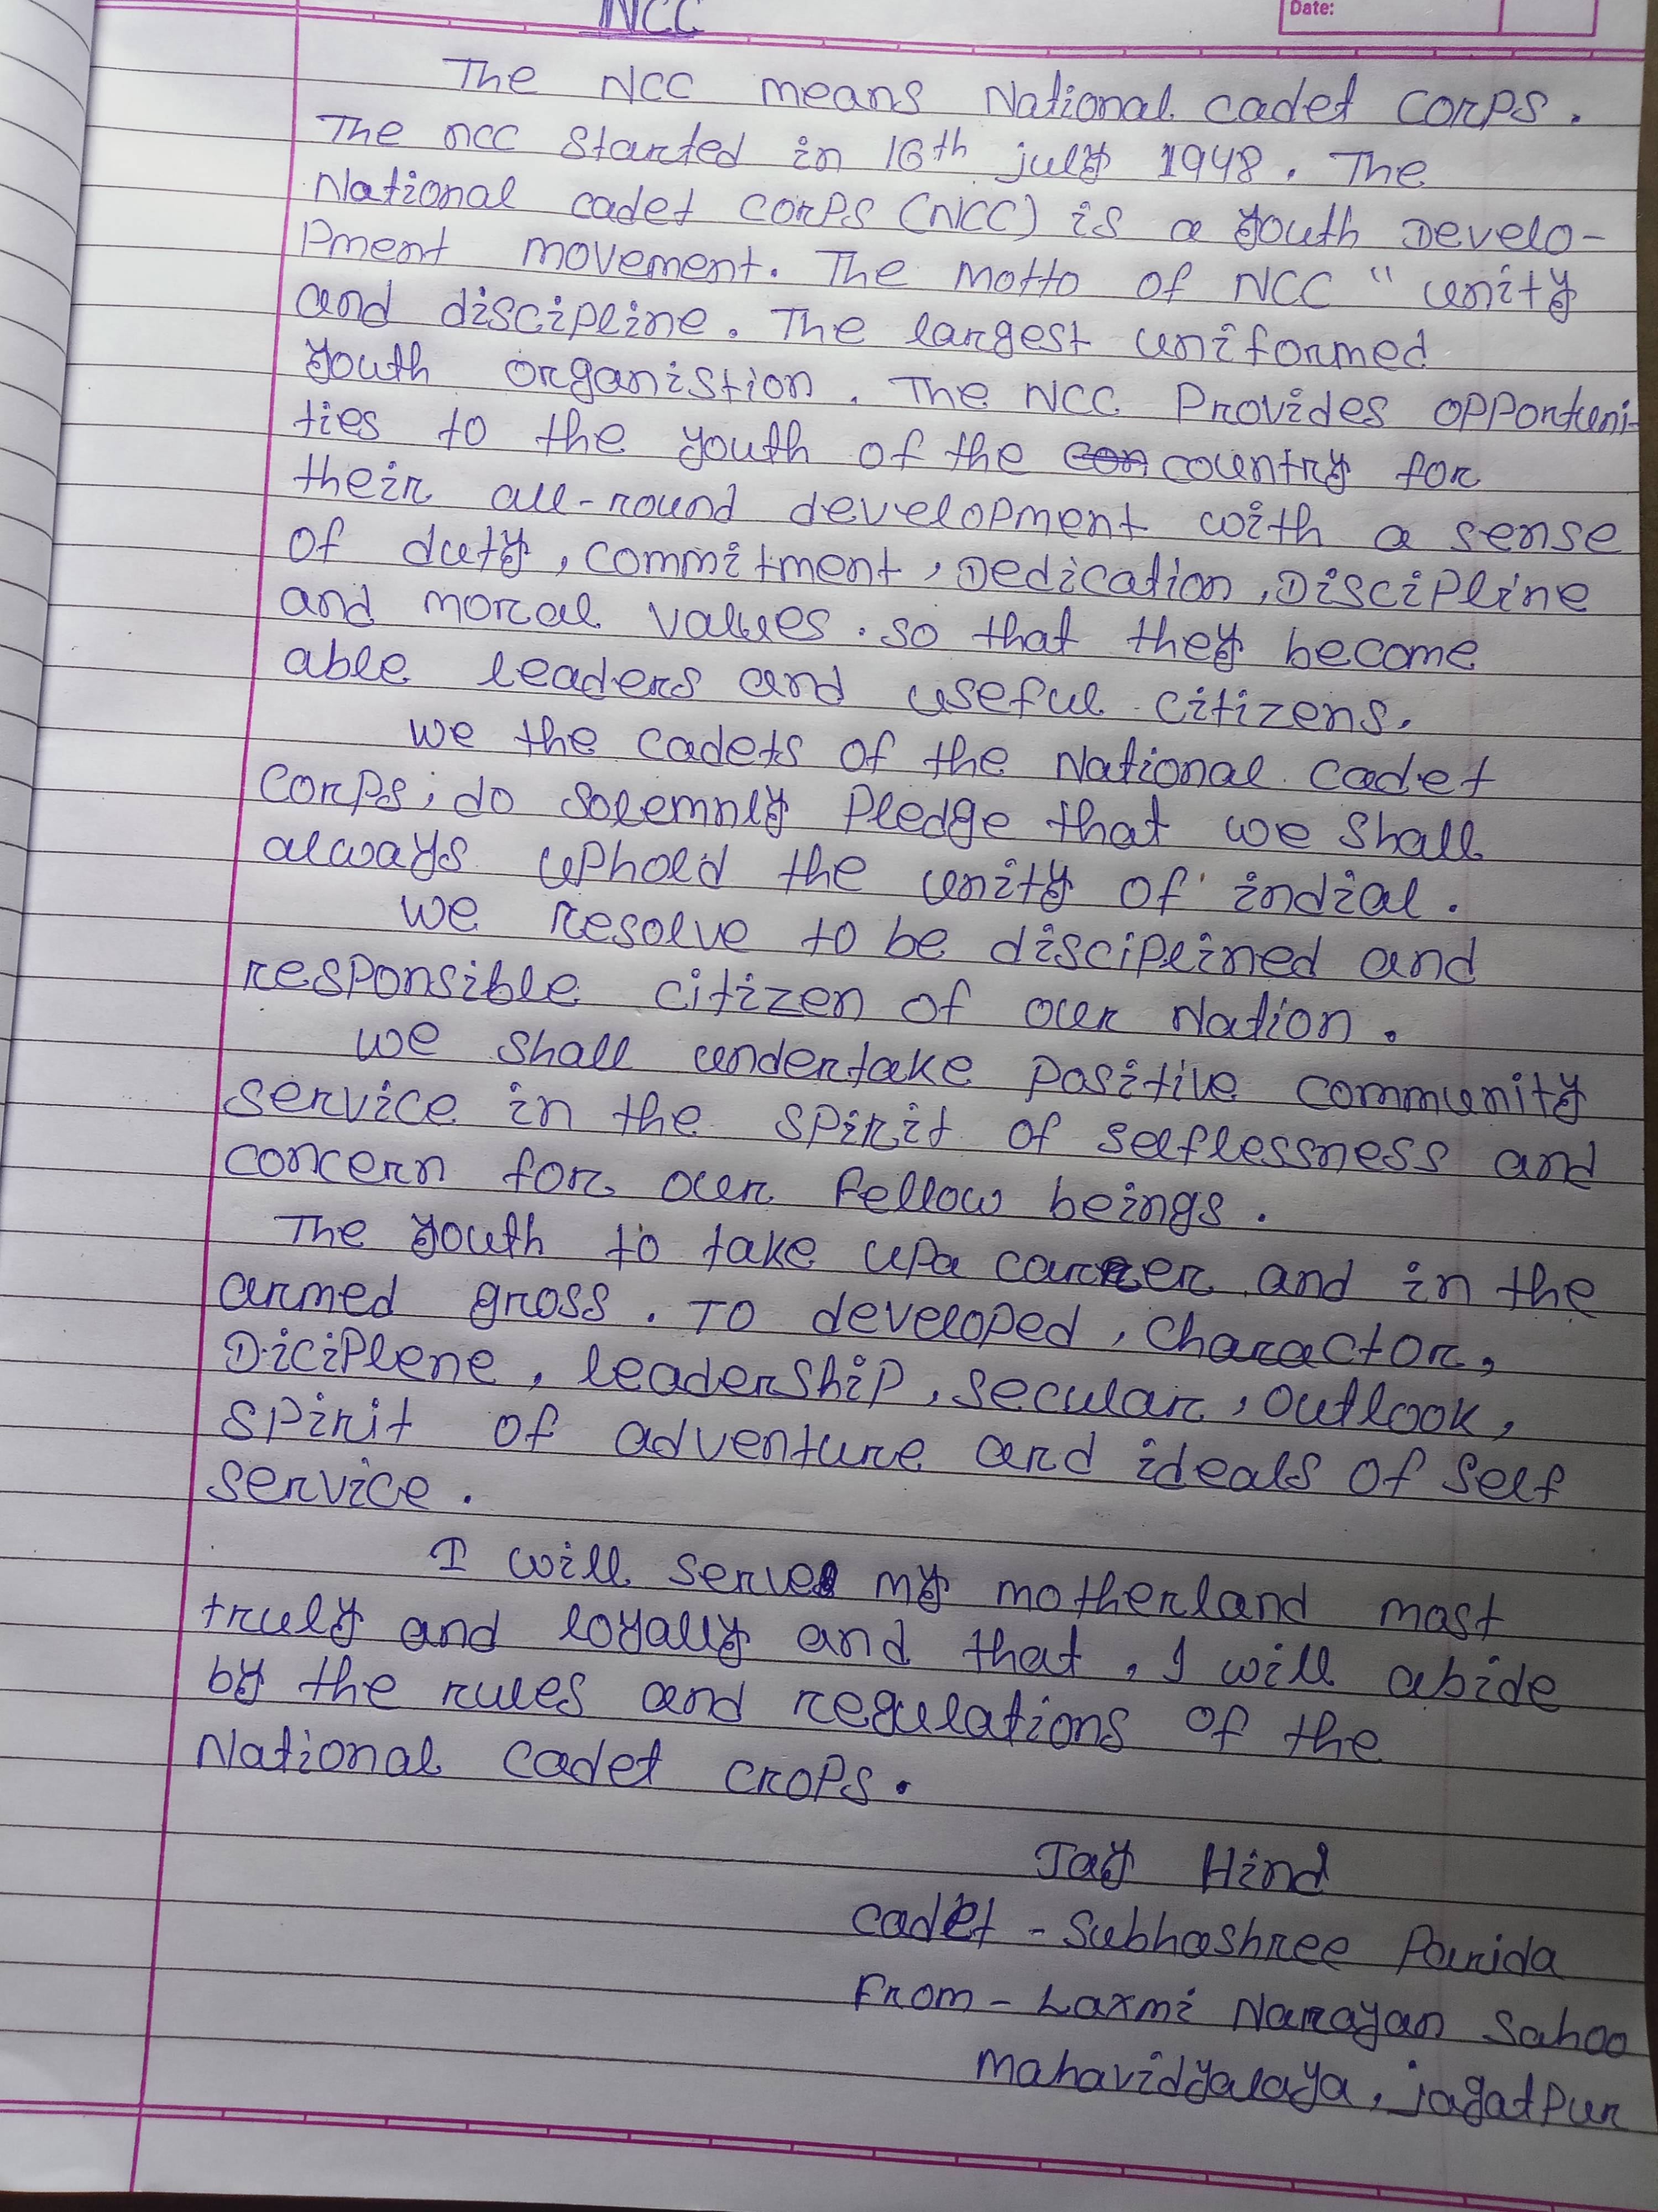 NCC
Date:
The NCC means National cadet corps.
The ncc started in 16th july 1948. The
National cadet corps (NCC) is a youth Develo-
pment movement. The motto of NCC " unity
and discipline. The largest uniformed
youth organistion. The NCC Provides opportuni-
ties to the youth of the con country for
their all-round development with a sense
of duty, commitment, Dedication, Discipline
and moral values. so that they become
able leaders and useful citizens.
we the cadets of the National cadet
corps, do solemnly pledge that we shall
always uphold the unity of indial.
we resolve to be disciplined and
responsible citizen of our Nation.
we shall undertake positive community
service in the spirit of selflessness and
concern for our fellow beings.
The youth to take upa career and in the
armed gross. To developed, charactor,
Diciplene, leadership, secular, outlook,
spirit of adventure and ideals of self
service.
I will serve my motherland most
truly and loyally and that, I will abide
by the rules and regulations of the
National cadet crops.
Jay Hind
cadet - Subhashree Parida
From - Laxmi Narayan Sahoo
Mahavidyalaya, jagatpur